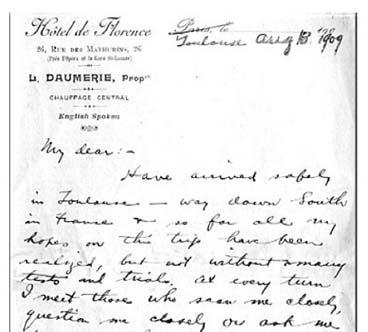 Hôtel de Florence
Paris, le
Toulouse Aug 13, 1909
26, RUE DES MATHURINS, 26
(Près l'Opéra et la Gare St-Lazare)
L. DAUMERIE, Propre
CHAUFFAGE CENTRAL
English Spoken
My dear:-
Have arrived safely
in Toulouse - way down South
in France & so far all my
hopes on this trip have been
realized, but not without many
tests and trials. At every turn
I meet those who scan me closely,
question me closely or ask me